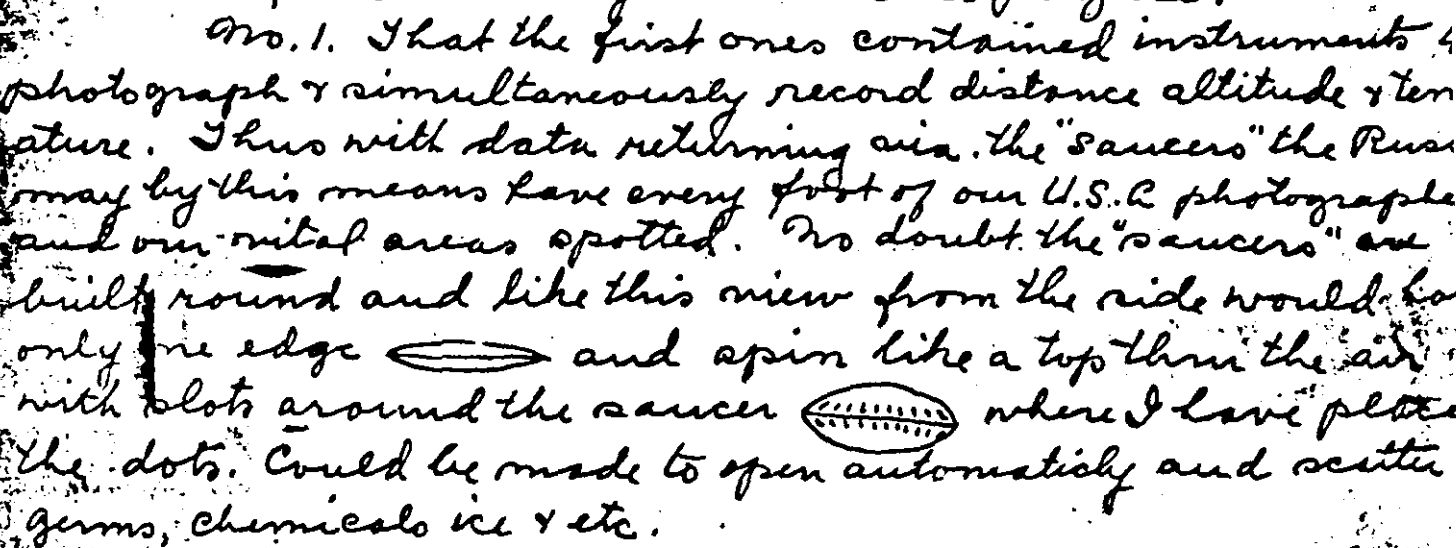 No. 1. That the first ones contained instruments
photograph & simultaneously record distance altitude & tem
ature. Thus with data returning via. the "saucers" the Russ
may by this means have every foot of our U.S.A photographe
and our vital areas spotted. No doubt the "saucers" are
built round and like this view from the side would ha
only one edge and spin like a top thru the air
with slots around the saucer where I have place
the dots. Could be made to open automaticly and scatter
germs, chemicals ice & etc.